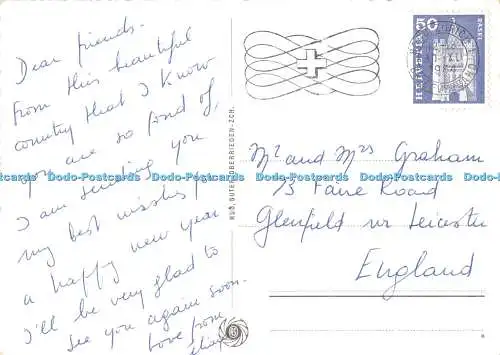 Dear friends.
From this beautiful
country that I know
you are so fond of,
I am sending you
my best wishes for
a happy new year
I'll be very glad to
see you again soon.
Love from
RUD. SUTER, OBERRIEDEN-ZCH.
50
HELVETIA
BASEL
Mr and Mrs Graham
13 Faire Road
Glenfield nr Leicester
England
Dodo-Postcards Dodo-Postcards Dodo-Postcards Dodo-Postcards Dodo-Postcards